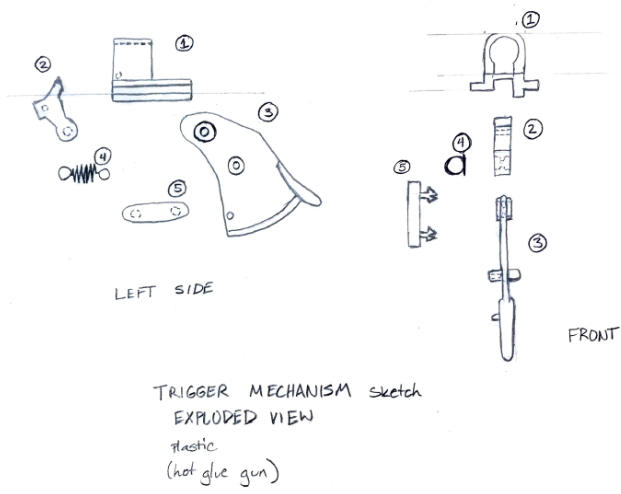 1
1
2
3
2
4
4
5
5
3
LEFT SIDE
FRONT
TRIGGER MECHANISM sketch
EXPLODED VIEW
plastic
(hot glue gun)